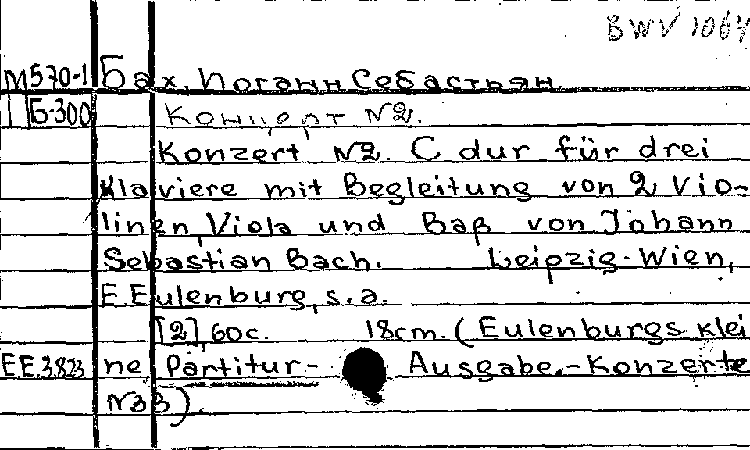 BWV 1064
М570-1 Бах, Иоганн Себастьян
Б-300 Концерт №2.
Konzert №2. C dur für drei
Klaviere mit Begleitung von 2 Vio-
linen, Viola und Baß von Johann
Sebastian Bach. Leipzig-Wien,
E Eulenburg, s.a.
[2], 60c. 18cm. (Eulenburgs klei
EE.3823 ne Partitur- Ausgabe.-Konzerte
N33).